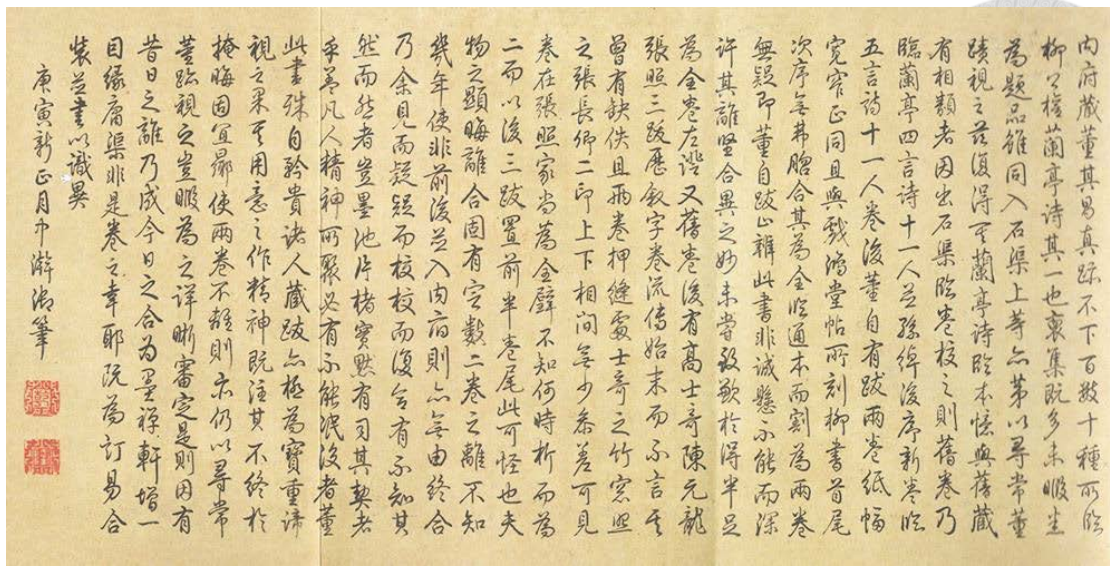 內府藏董其昌真跡不下百數十種所臨
柳公權蘭亭詩其一也裒集既多未暇坐
為題品雖同入石渠上等亦第以尋常董
蹟視之茲復得其蘭亭詩臨本憶與舊藏
有相類者因出石渠臨卷校之則舊卷乃
臨蘭亭四言詩十一人並孫綽後序新卷臨
五言詩十一人卷後董自有跋兩卷紙幅
寬窄正同且與戲鴻堂帖所刻柳書首尾
次序無弗脗合其為全臨通本而割為兩卷
無疑即董自跋止雜此書非誠懸不能而深
許其離堅合異之妙未嘗致歉於得半足
為全卷左證又舊卷後有高士奇陳元龍
張照三跋歷敘字卷流傳始末而不言其
曾有缺佚且兩卷押縫處士奇之竹窓照
之張長卿二印上下相間無少參差可見
卷在張照家尚為全璧不知何時析而為
二而以後三跋置前半卷尾此可怪也夫
物之顯晦離合固有定數二卷之離不知
幾年使非前後並入內府則亦無由終合
乃余見而疑疑而校校而復合有不知其
然而然者豈墨池片楮實默有司其契者
乎第凡人精神所聚必有不能泯沒者董
此書殊自矜貴諸人藏跋亦極為寶重諦
視之果其用意之作精神既注其不終於
掩晦固宜鄉使兩卷不離則亦仍以尋常
董跡視之豈暇為之詳晰審定是則因有
昔日之離乃成今日之合為墨禪軒增一
目緣庸渠非是卷之幸耶既為訂易合
裝並書以識異
庚寅新正月中澣御筆